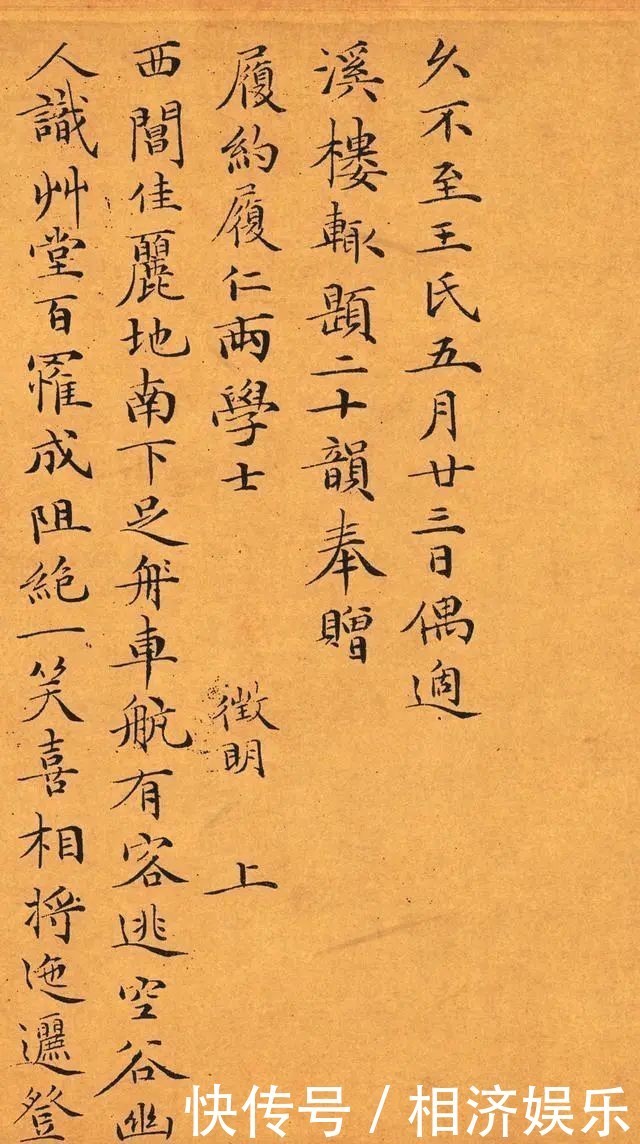 久不至王氏五月廿三日偶過
溪樓輙題二十韻奉贈
履約履仁兩學士 徵明 上
西閶佳麗地南下足舟車航有客逃空谷幽
人識艸堂百罹成阻絶一笑喜相將迤邐登
快传号 / 相济娱乐